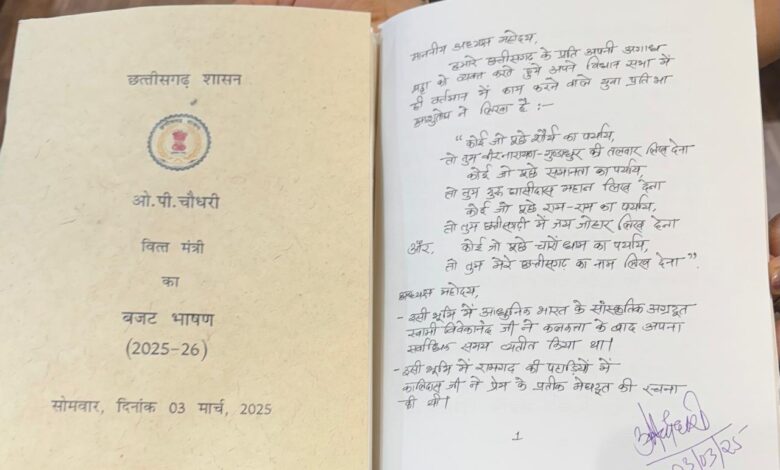 छत्तीसगढ़ शासन
ओ.पी.चौधरी
वित्त मंत्री
का
बजट भाषण
(2025-26)
सोमवार, दिनांक 03 मार्च, 2025
माननीय अध्यक्ष महोदय,
हमारे छत्तीसगढ़ के प्रति अपनी अगाध
श्रद्धा को व्यक्त करते हुये अपने विधान सभा में
ही वर्तमान में काम करने वाले युवा प्रतिभा
ने लिखा है :-
“कोई जो पूछे शौर्य का पर्याय,
तो तुम वीरनारायण-गुण्डाधुर की तलवार लिख देना
कोई जो पूछे समानता का पर्याय,
तो तुम गुरु घासीदास महान लिख देना
कोई जो पूछे राम-राम का पर्याय,
तो तुम छत्तीसगढ़ी में जय जोहार लिख देना
और, कोई जो पूछे चारों धाम का पर्याय,
तो तुम मेरे छत्तीसगढ़ का नाम लिख देना”
अध्यक्ष महोदय,
- इसी भूमि में आधुनिक भारत के सांस्कृतिक अग्रदूत
स्वामी विवेकानंद जी ने कलकत्ता के बाद अपना
सर्वाधिक समय व्यतीत किया था।
- इसी भूमि में रामगढ़ की पहाड़ियों में
कालिदास जी ने प्रेम के प्रतीक मेघदूत की रचना
की थी।
1
03/03/25